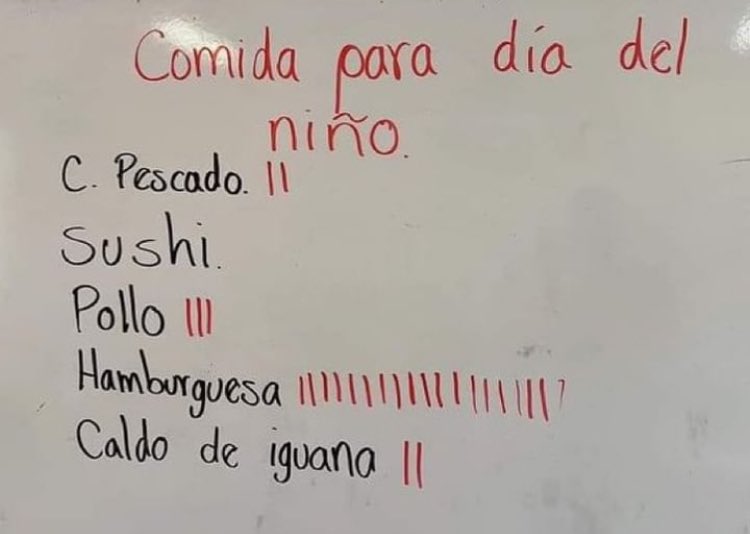 Comida para día del
niño.
C. Pescado. ||
Sushi.
Pollo |||
Hamburguesa ||||||||||||||||||
Caldo de iguana ||